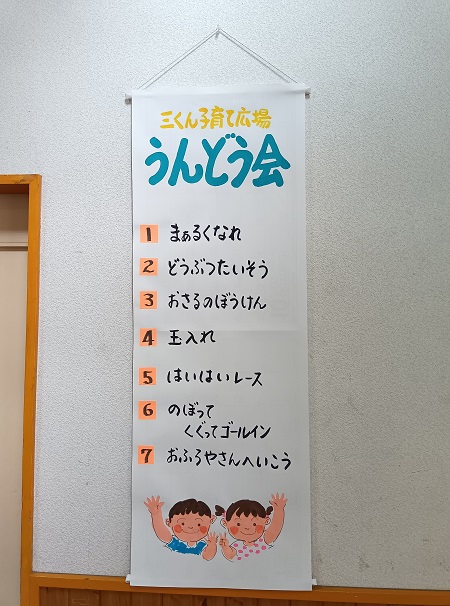 三くん子育て広場
うんどう会
1 まぁるくなれ
2 どうぶつたいそう
3 おさるのぼうけん
4 玉入れ
5 はいはいレース
6 のぼって
くぐってゴールイン
7 おふろやさんへいこう